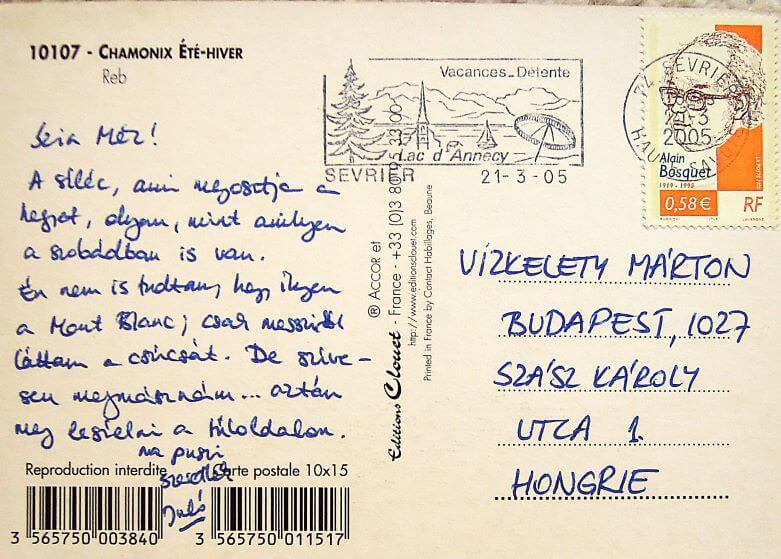 10107 - CHAMONIX ÉTÉ-HIVER
Reb
Szia Mez!
A stléc, ami megosztja a
hegyet, olyan, mint amilyen
a szobádban is van.
Én nem is tudtam, hogy ilyen
a Mont Blanc; csak messziről
láttam a csúcsát. De szíve-
sen megmásznám... aztán
meg lesielni a túloldalon.
na puszi
szeretlek
Reproduction interdite
Carte postale 10x15
3 565750 003840
3 565750 011517
Editions Clouet - France - +33 (0)3 80 26 33 00
® ACCOR et
http://www.editionsclouet.com
Printed in France by Contact Habillages, Beaune
Vacances - Détente
Lac d'Annecy
SEVRIER 21-3-05
74 SEVRIER
21-3
2005
HAUTE SAVOIE
Alain
Bosquet
1919 - 1998
0,58 € RF
VÍZKELETY MÁRTON
BUDAPEST, 1027
SZÁSZ KÁROLY
UTCA 1.
HONGRIE